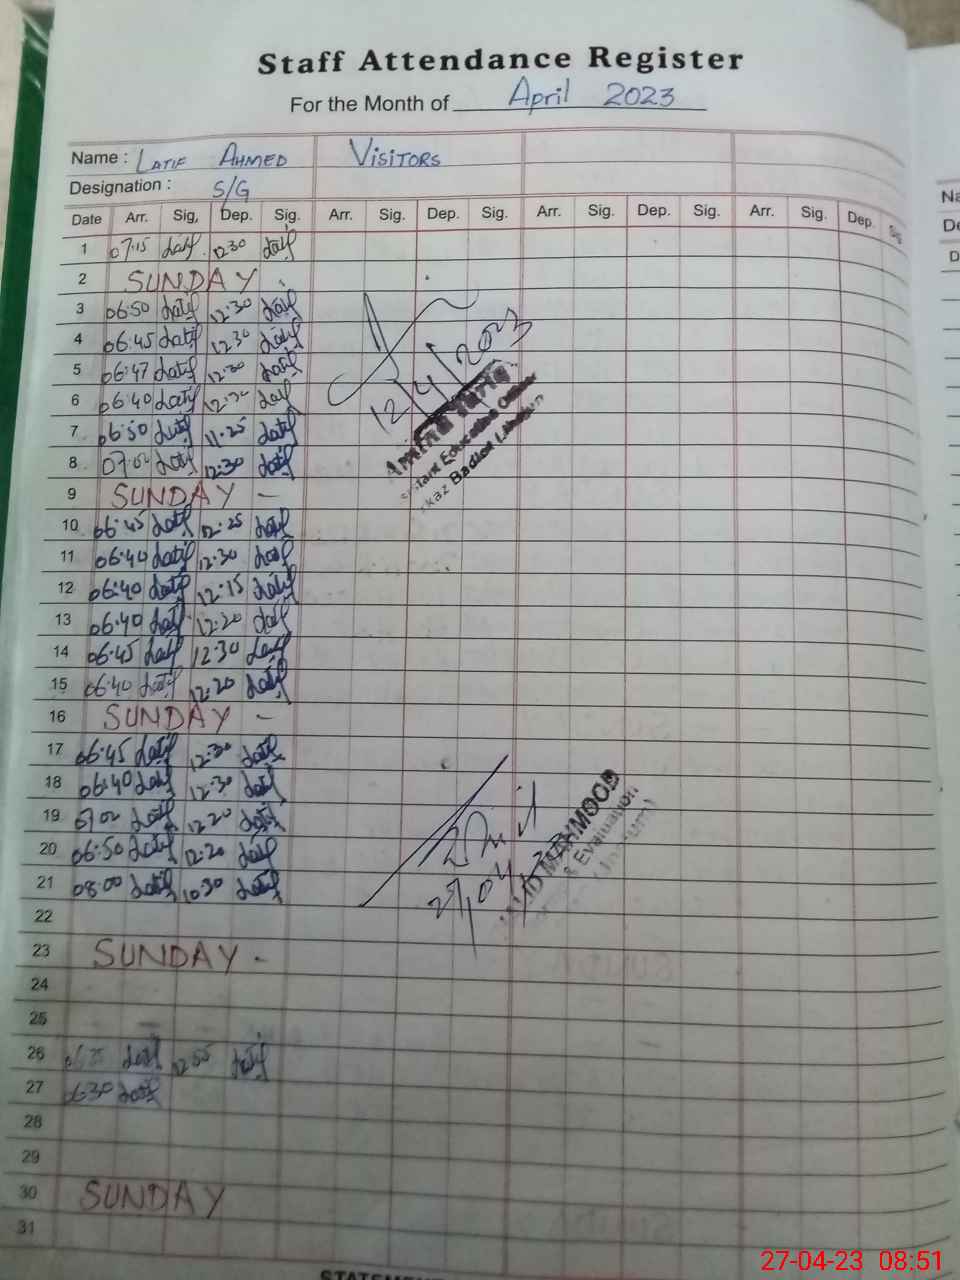 Staff Attendance Register
For the Month of April 2023
Name : LATIF AHMED VISITORS
Designation : S/G
Date Arr. Sig, Dep. Sig. Arr. Sig. Dep. Sig. Arr. Sig. Dep. Sig. Arr. Sig. Dep. Sig
1 07:15 Latif 12:30 Latif
2 SUNDAY
3 06:50 Latif 12:30 Latif
4 06:45 Latif 12:30 Latif
5 06:47 Latif 12:30 Latif
6 06:40 Latif Latif
7 06:50 Latif 11:25 Latif
8 07:00 Latif 12:30 Latif
9 SUNDAY -
10 06:45 Latif 12:25 Latif
11 06:40 Latif 12:30 Latif
12 06:40 Latif 12:15 Latif
13 06:40 Latif 12:20 Latif
14 06:45 Latif 12:30 Latif
15 06:40 Latif 12:20 Latif
16 SUNDAY -
17 06:45 Latif 12:30 Latif
18 06:40 Latif 12:30 Latif
19 Latif 12:20 Latif
20 06:50 Latif 12:20 Latif
21 08:00 Latif 10:30 Latif
22
23 SUNDAY -
24
25
26 Latif 12:55 Latif
27 0630 Latif
28
29
30 SUNDAY
31
12/4/2023
Education
Badian
MAHMOOD
& Evaluation
27-04-23 08:51